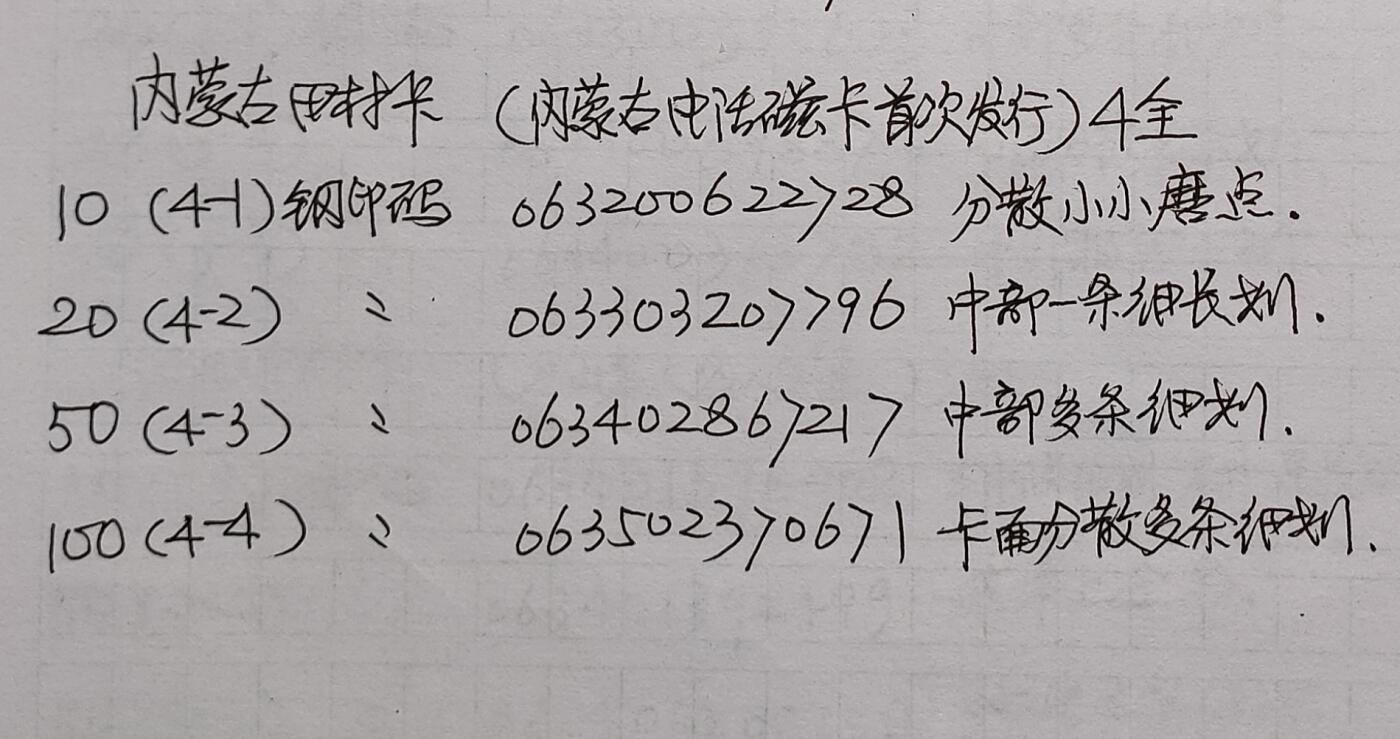 内蒙古田村卡 (内蒙古电话磁卡首次发行) 4全
10 (4-1) 钢印码 063200622728 分散小小磨点.
20 (4-2) 〃 063303207796 中部一条细长划.
50 (4-3) 〃 063402867217 中部多条细划.
100 (4-4) 〃 063502370671 卡面分散多条细划.